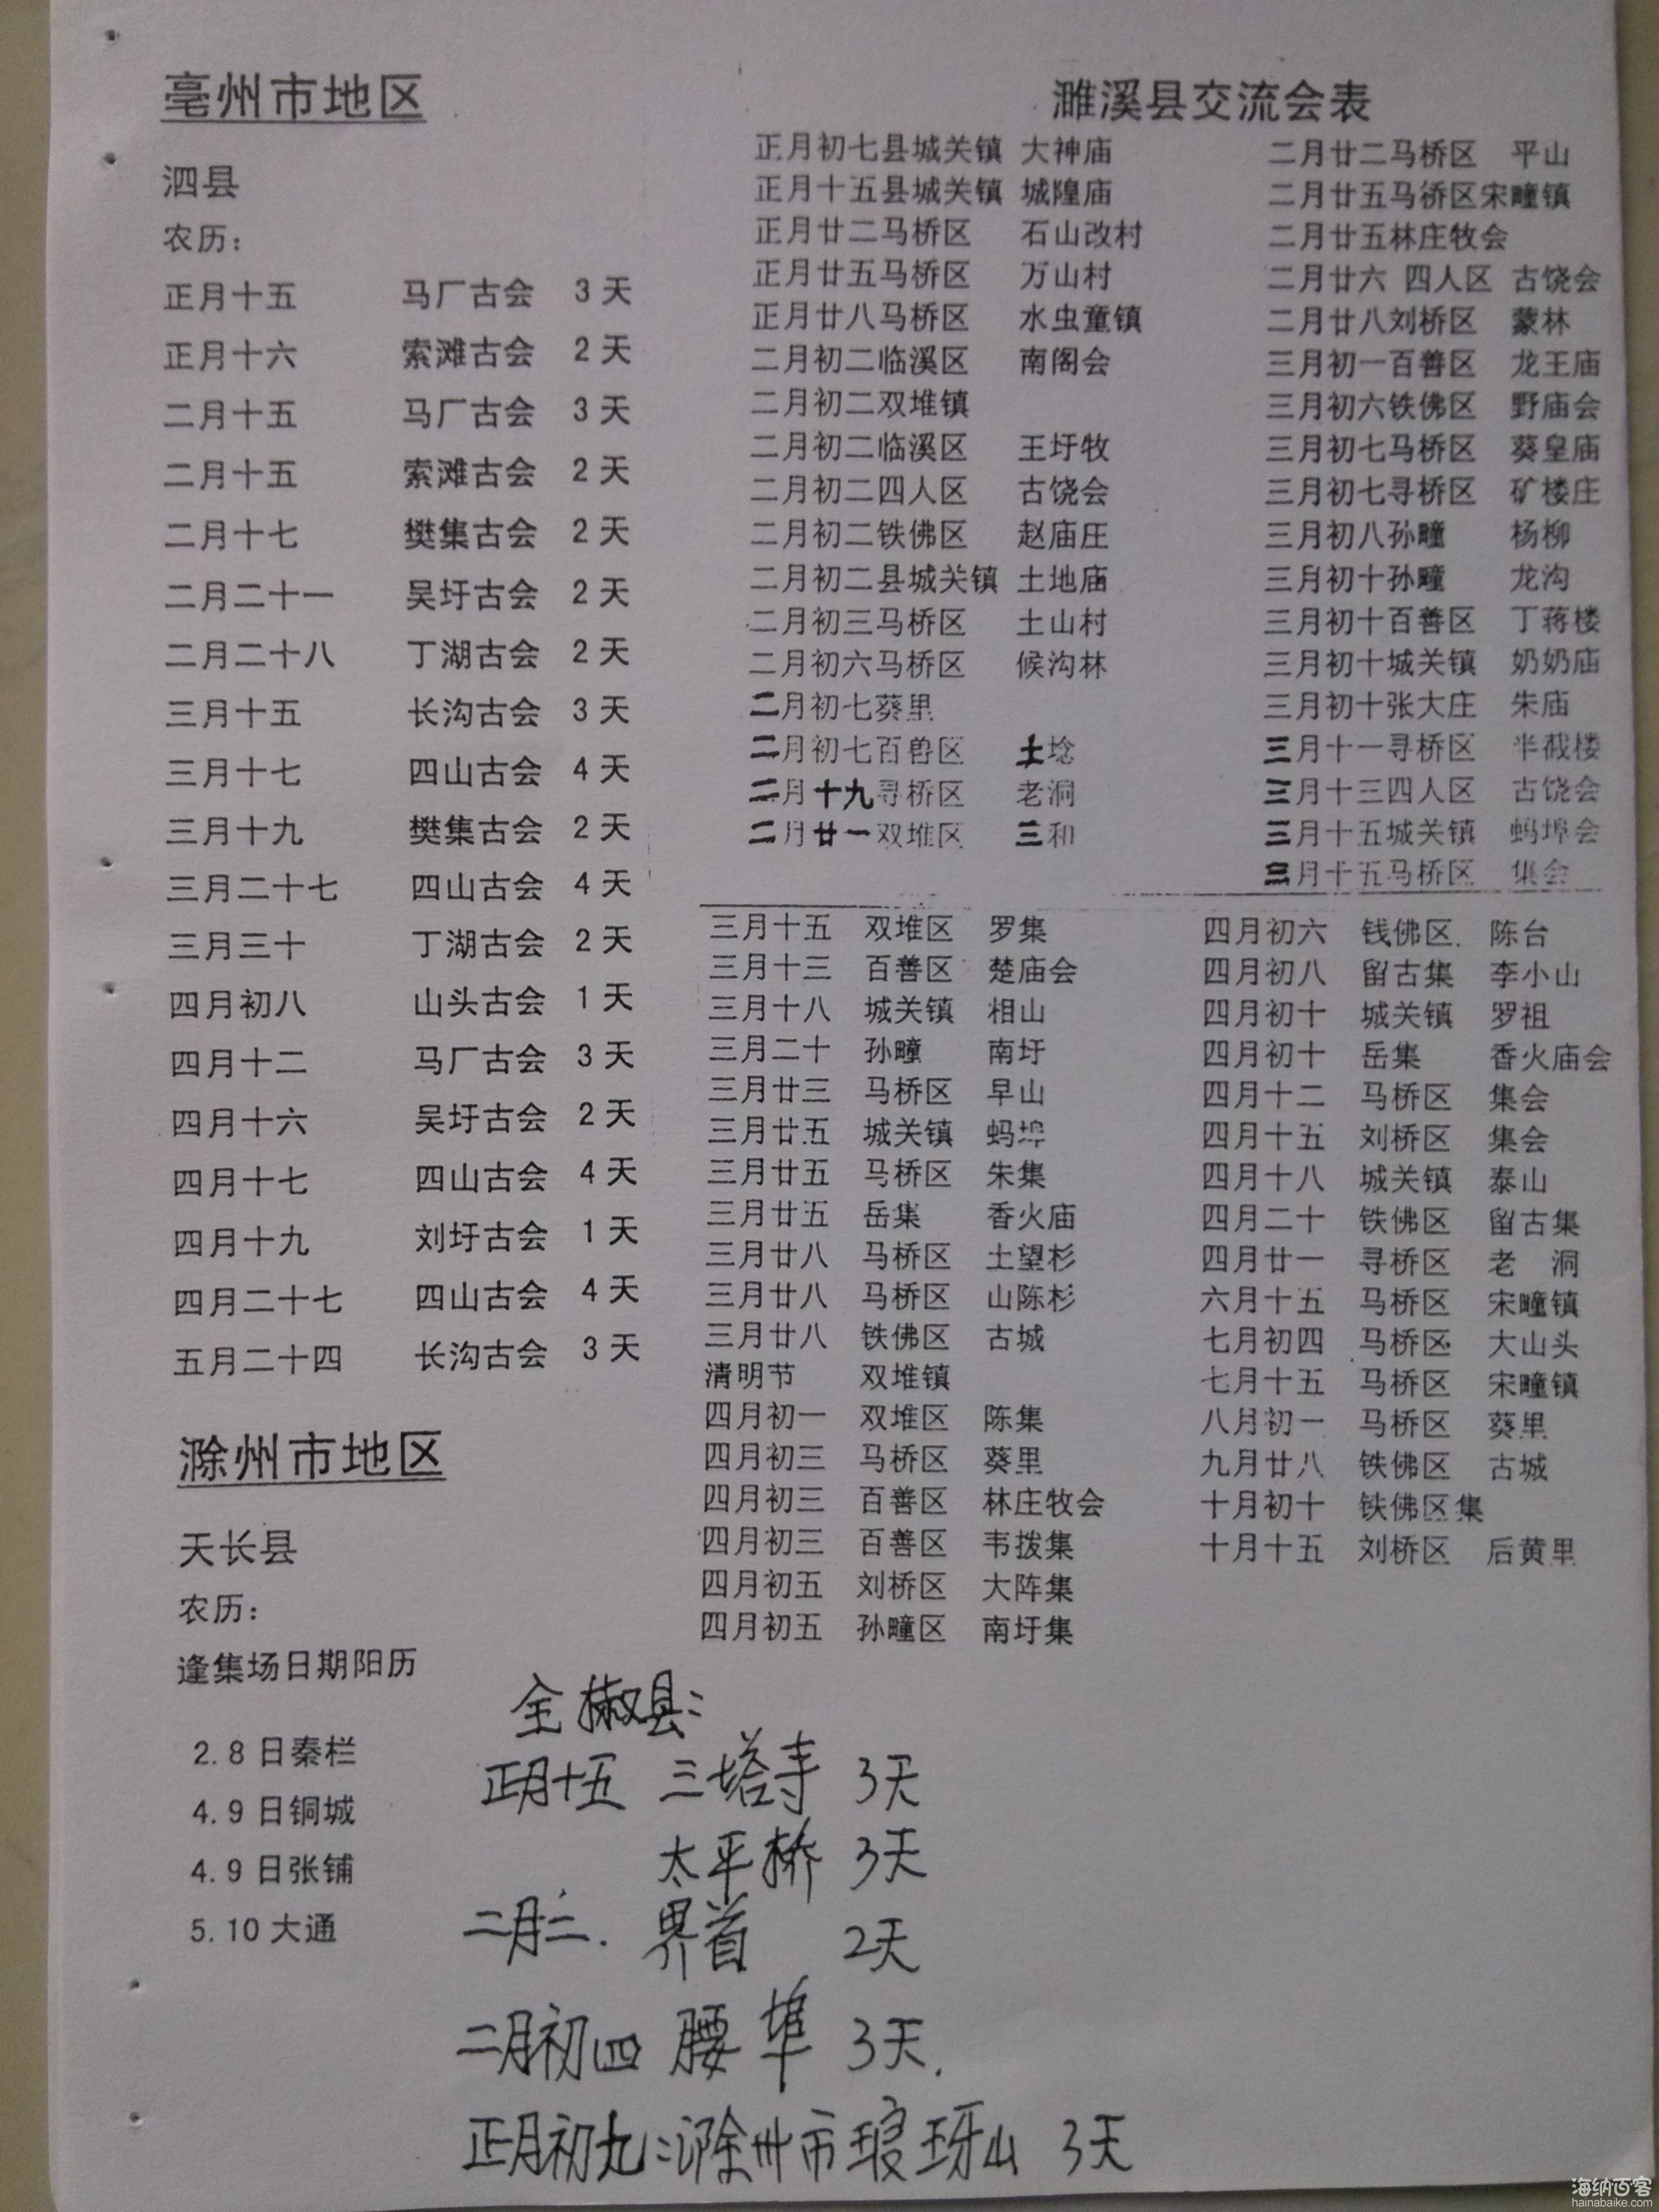 亳州市地区
泗县
农历：
正月十五 马厂古会 3天
正月十六 索滩古会 2天
二月十五 马厂古会 3天
二月十五 索滩古会 2天
二月十七 樊集古会 2天
二月二十一 吴圩古会 2天
二月二十八 丁湖古会 2天
三月十五 长沟古会 3天
三月十七 四山古会 4天
三月十九 樊集古会 2天
三月二十七 四山古会 4天
三月三十 丁湖古会 2天
四月初八 山头古会 1天
四月十二 马厂古会 3天
四月十六 吴圩古会 2天
四月十七 四山古会 4天
四月十九 刘圩古会 1天
四月二十七 四山古会 4天
五月二十四 长沟古会 3天
滁州市地区
天长县
农历：
逢集场日期阳历
2.8日秦栏
4.9日铜城
4.9日张铺
5.10大通
濉溪县交流会表
正月初七县城关镇 大神庙
正月十五县城关镇 城隍庙
正月廿二马桥区 石山改村
正月廿五马桥区 万山村
正月廿八马桥区 水虫童镇
二月初二临溪区 南阁会
二月初二双堆镇
二月初二临溪区 王圩牧
二月初二四人区 古饶会
二月初二铁佛区 赵庙庄
二月初二县城关镇 土地庙
二月初三马桥区 土山村
二月初六马桥区 候沟林
二月初七葵里
二月初七百兽区 土埝
二月十九寻桥区 老洞
二月廿一双堆区 三和
二月廿二马桥区 平山
二月廿五马桥区宋疃镇
二月廿五林庄牧会
二月廿六 四人区 古饶会
二月廿八刘桥区 蒙林
三月初一百善区 龙王庙
三月初六铁佛区 野庙会
三月初七马桥区 葵皇庙
三月初七寻桥区 矿楼庄
三月初八孙疃 杨柳
三月初十孙疃 龙沟
三月初十百善区 丁蒋楼
三月初十城关镇 奶奶庙
三月初十张大庄 朱庙
三月十一寻桥区 半截楼
三月十三四人区 古饶会
三月十五城关镇 蚂埠会
三月十五马桥区 集会
三月十五 双堆区 罗集
三月十三 百善区 楚庙会
三月十八 城关镇 相山
三月二十 孙疃 南圩
三月廿三 马桥区 早山
三月廿五 城关镇 蚂埠
三月廿五 马桥区 朱集
三月廿五 岳集 香火庙
三月廿八 马桥区 土望杉
三月廿八 马桥区 山陈杉
三月廿八 铁佛区 古城
清明节 双堆镇
四月初一 双堆区 陈集
四月初三 马桥区 葵里
四月初三 百善区 林庄牧会
四月初三 百善区 韦拨集
四月初五 刘桥区 大阵集
四月初五 孙疃区 南圩集
四月初六 钱佛区 陈台
四月初八 留古集 李小山
四月初十 城关镇 罗祖
四月初十 岳集 香火庙会
四月十二 马桥区 集会
四月十五 刘桥区 集会
四月十八 城关镇 泰山
四月二十 铁佛区 留古集
四月廿一 寻桥区 老 洞
六月十五 马桥区 宋疃镇
七月初四 马桥区 大山头
七月十五 马桥区 宋疃镇
八月初一 马桥区 葵里
九月廿八 铁佛区 古城
十月初十 铁佛区集
十月十五 刘桥区 后黄里
全椒县：
正月十五 三塔寺 3天
太平桥 3天
二月二. 界首 2天
二月初四 腰埠 3天.
正月初九：滁州市琅玡山 3天
海纳百客
hainabaike.com